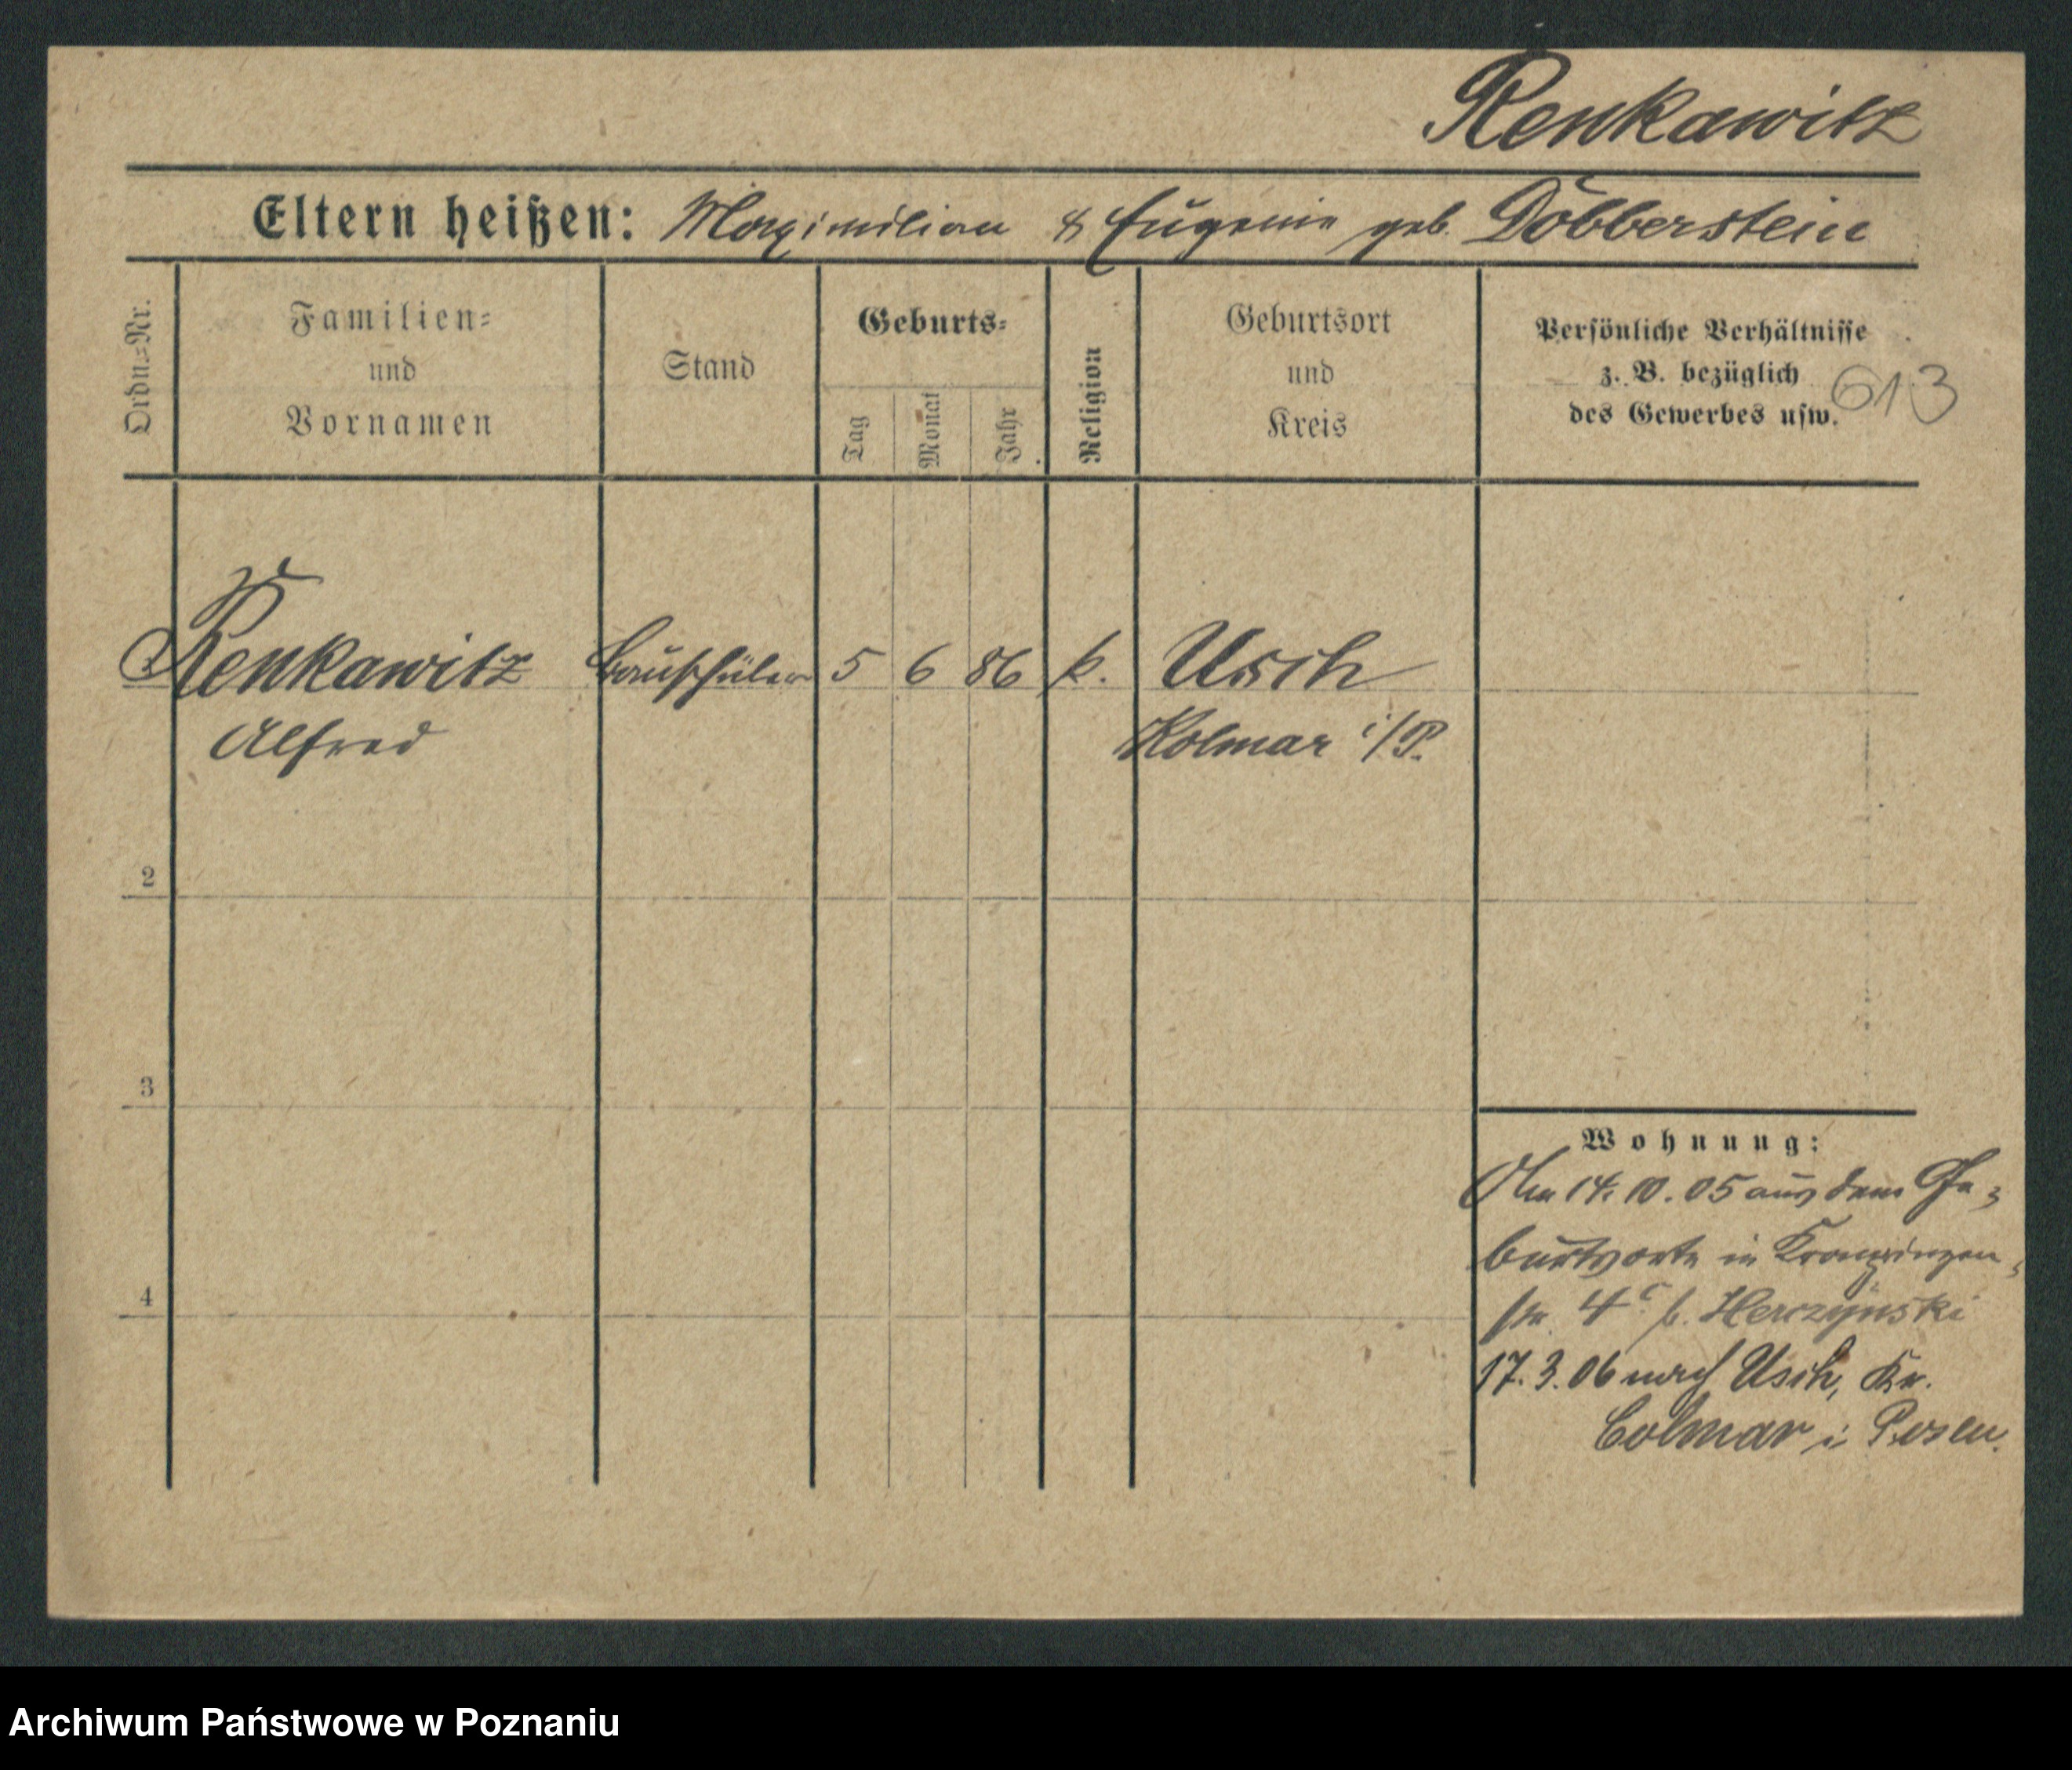 Renkawitz
Eltern heißen: Maximilian & Eugenie geb. Döbberstein
Ordn=Nr.
Familien=
und
Vornamen
Stand
Geburts=
Tag
Monat
Jahr
Religion
Geburtsort
und
Kreis
Persönliche Verhältnisse
z. B. bezüglich
des Gewerbes usw.
613
Renkawitz Bauschüler 5 6 86 k. Usch
Alfred Kolmar i/P.
2
3
4
Wohnung:
Am 14. 10. 05 aus dem Ge=
burtsorte in Kronprinzen=
str. 4c b. Herczynski
17. 3. 06 nach Usch, Kr.
Colmar i Posen.
Archiwum Państwowe w Poznaniu